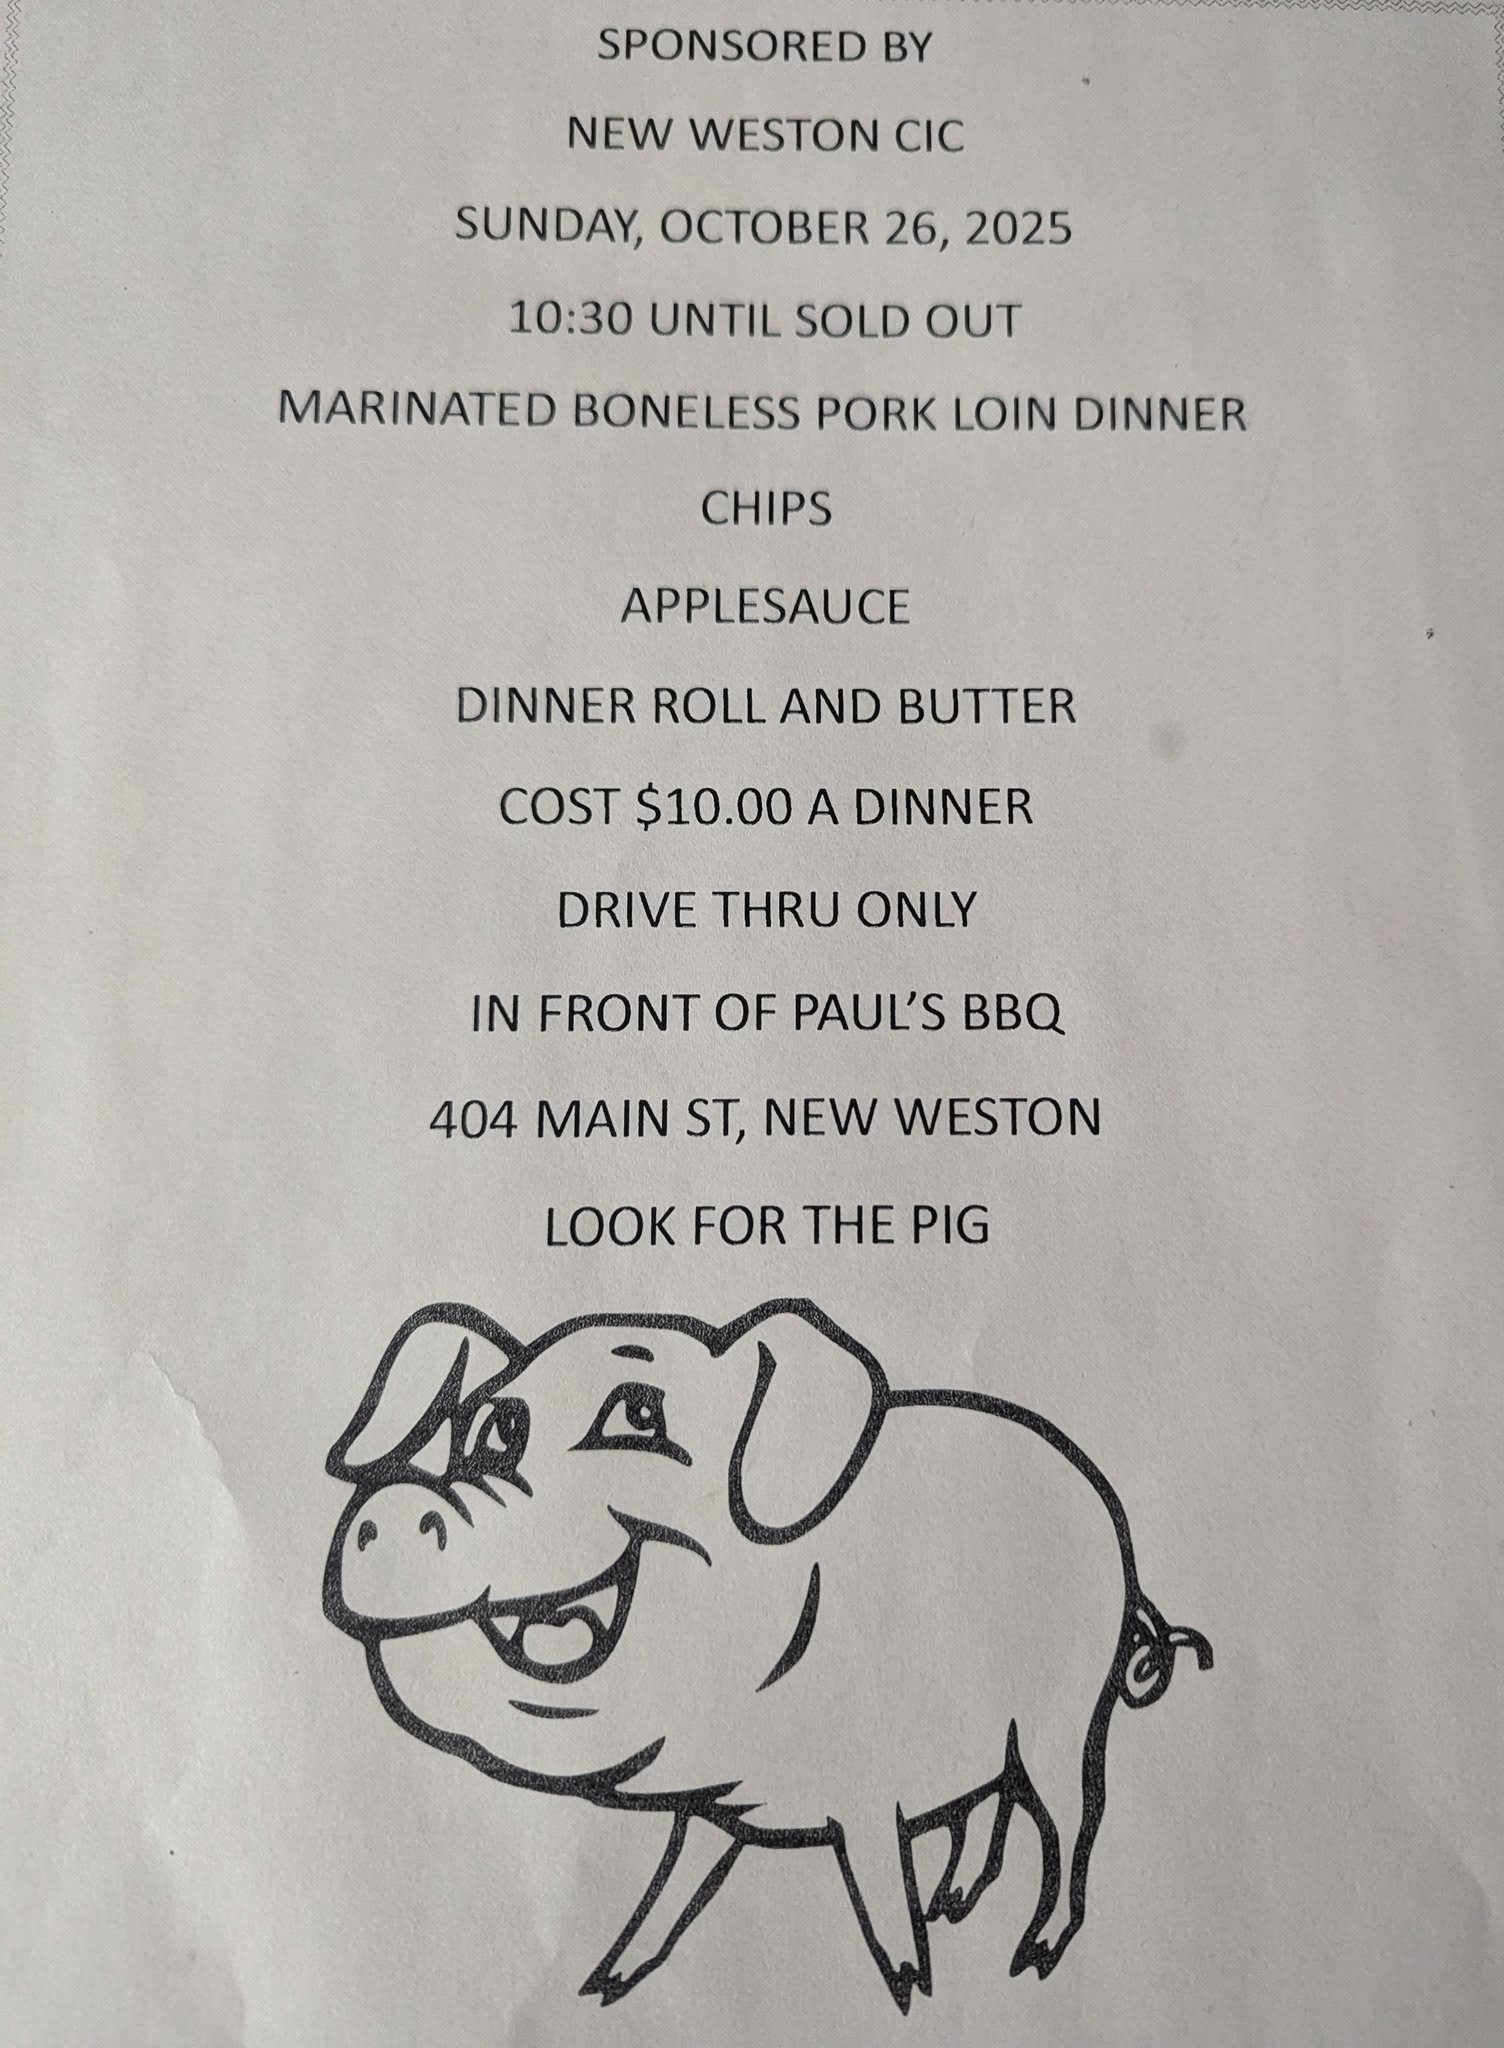 SPONSORED BY
NEW WESTON CIC
SUNDAY, OCTOBER 26, 2025
10:30 UNTIL SOLD OUT
MARINATED BONELESS PORK LOIN DINNER
CHIPS
APPLESAUCE
DINNER ROLL AND BUTTER
COST $10.00 A DINNER
DRIVE THRU ONLY
IN FRONT OF PAUL’S BBQ
404 MAIN ST, NEW WESTON
LOOK FOR THE PIG